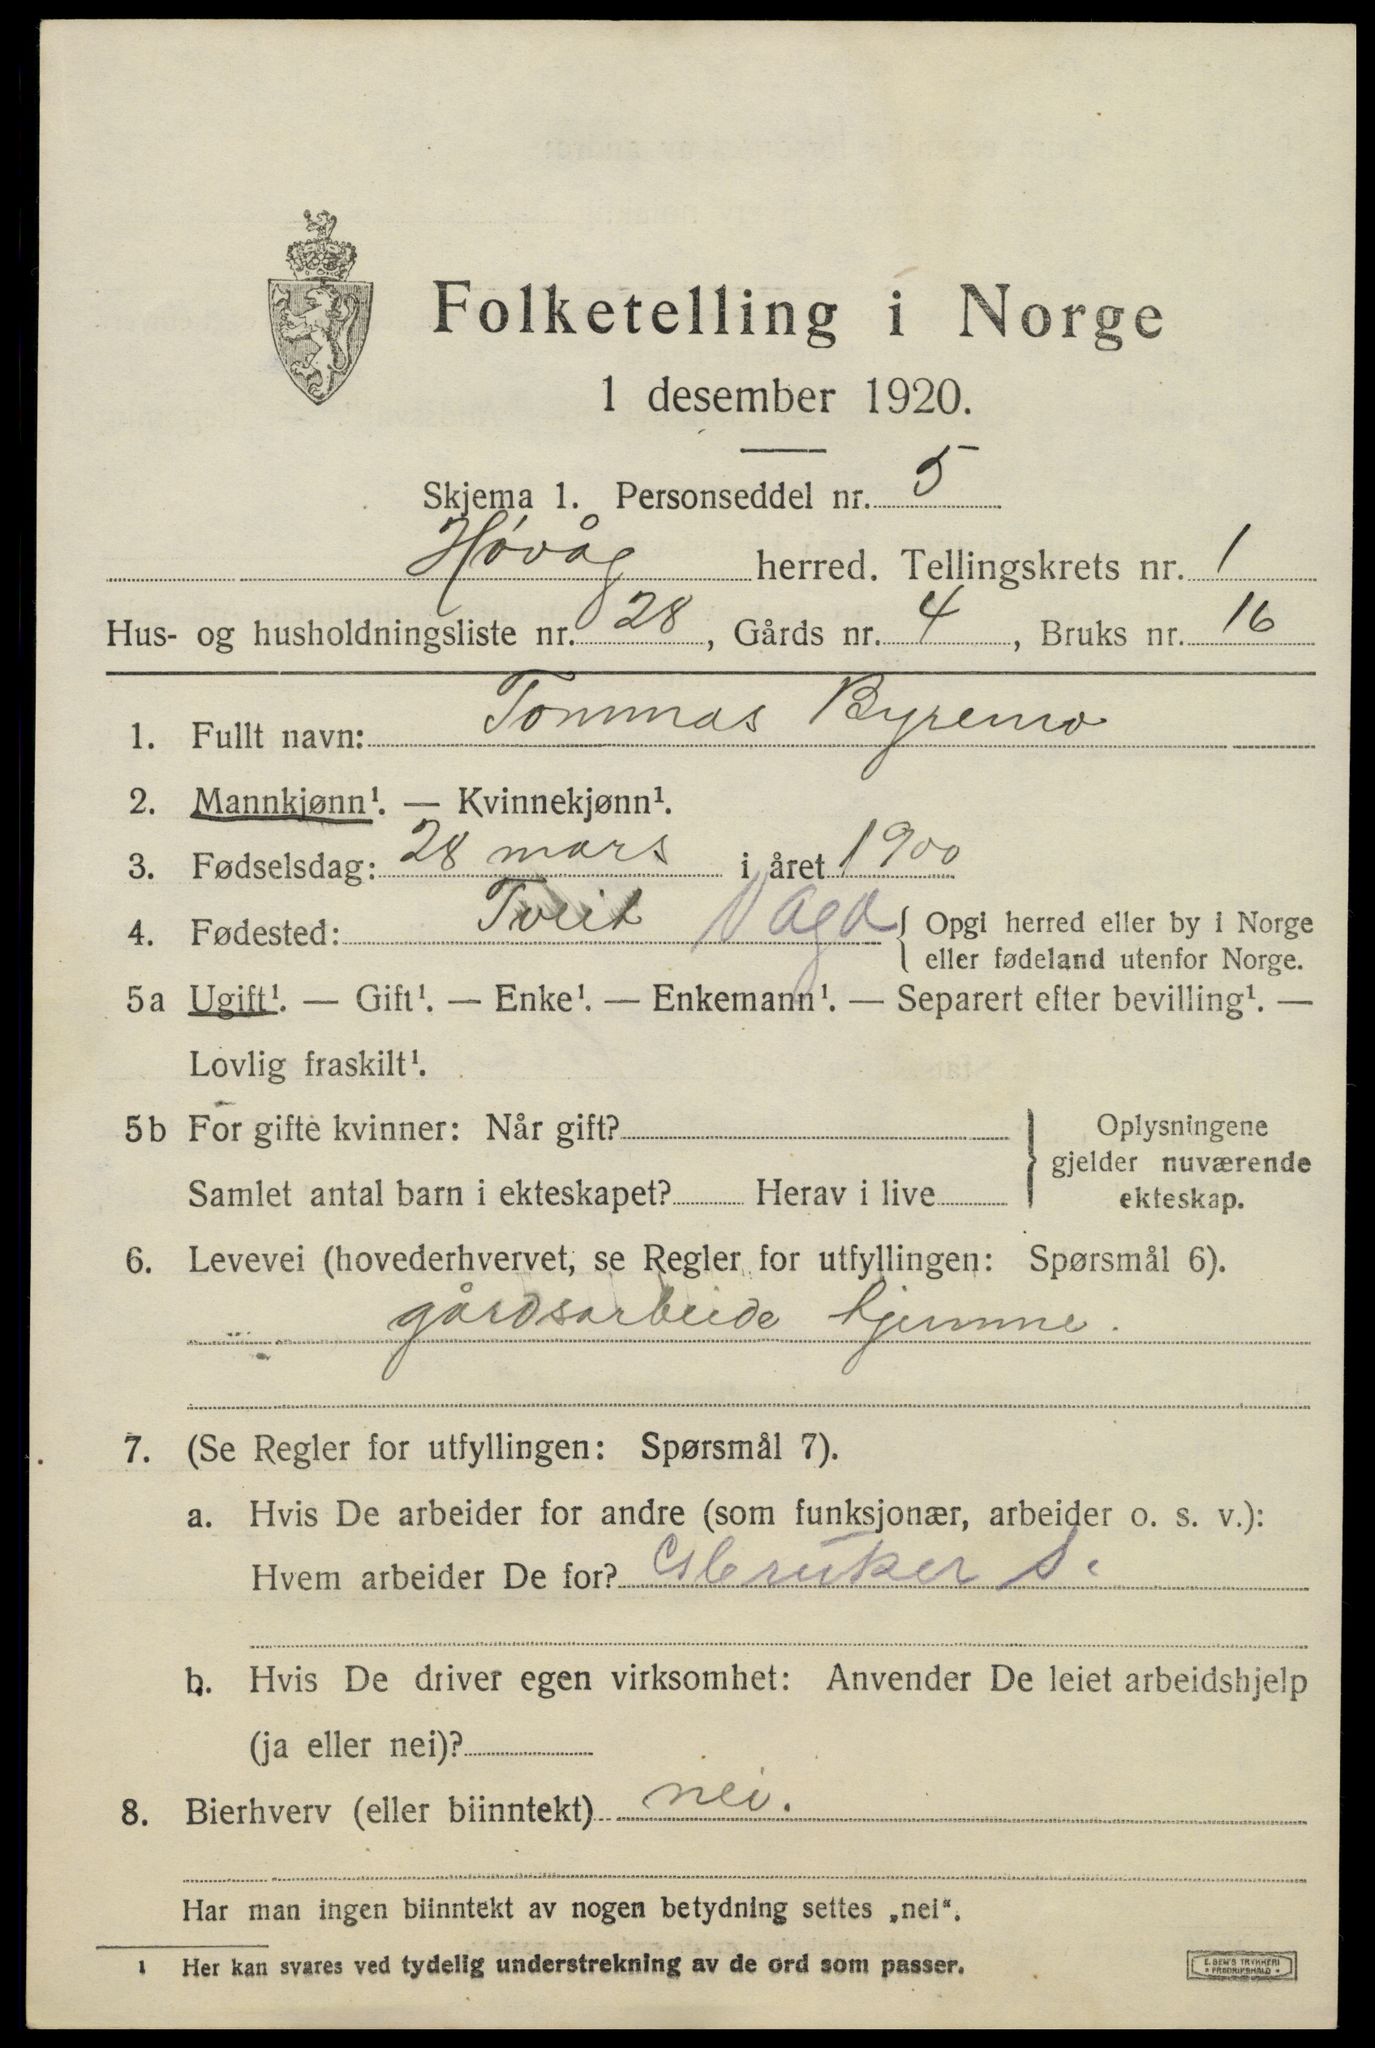 Folketelling i Norge
1 desember 1920.
Skjema 1. Personseddel nr. 5
Høvåg herred. Tellingskrets nr. 1
Hus- og husholdningsliste nr. 28, Gårds nr. 4, Bruks nr. 16
1. Fullt navn: Tommas Byremo
2. Mannkjønn¹. — Kvinnekjønn¹.
3. Fødselsdag: 28 mars i året 1900
4. Fødested: Tveit V agd { Opgi herred eller by i Norge
eller fødeland utenfor Norge.
5a Ugift¹. — Gift¹. — Enke¹. — Enkemann¹. — Separert efter bevilling¹. —
Lovlig fraskilt¹.
5b For gifte kvinner: Når gift? } Oplysningene
gjelder nuværende
Samlet antal barn i ekteskapet? Herav i live ekteskap.
6. Levevei (hovederhvervet, se Regler for utfyllingen: Spørsmål 6).
gårdsarbeide hjemme.
7. (Se Regler for utfyllingen: Spørsmål 7).
a. Hvis De arbeider for andre (som funksjonær, arbeider o. s. v.):
Hvem arbeider De for? Gbruker S.
b. Hvis De driver egen virksomhet: Anvender De leiet arbeidshjelp
(ja eller nei)?
8. Bierhverv (eller biinntekt) nei.
Har man ingen biinntekt av nogen betydning settes „nei“.
1 Her kan svares ved tydelig understrekning av de ord som passer.
E. SEM'S TRYKKERI
* FREDRIKSHALD *